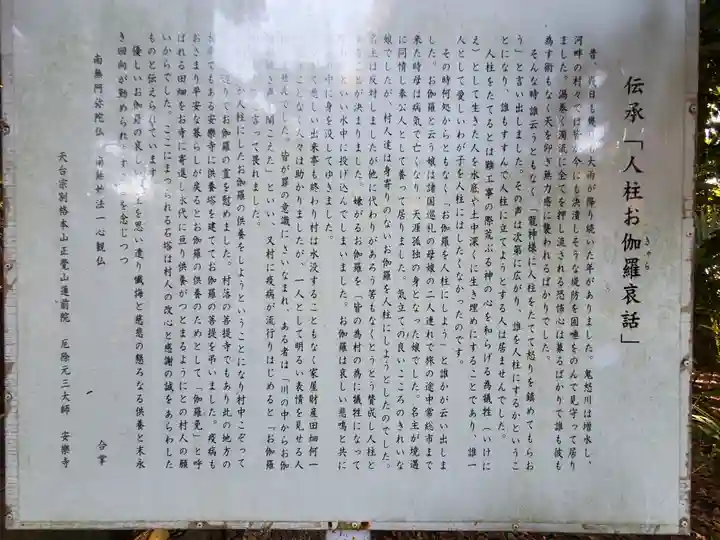 伝承「人柱お伽羅哀話」
きゃら
昔、幾日も幾日も大雨が降り続いた年がありました。鬼怒川は増水し、
河畔の村々では皆が今にも決潰しそうな堤防を固唾をのんで見守って居り
ました。渦巻く濁流に全てを押し流される恐怖心は募るばかりで誰も彼も
為す術もなく天を仰ぎ無力感に襲われるばかりでした。
そんな時誰云うともなく、「龍神様に人柱をたてて怒りを鎮めてもらお
う」と言い出しました。その声は次第に広がり、誰を人柱にするかというこ
とになり、誰もすすんで人柱に立てようとする人は居ませんでした。
人柱をたてるとは難工事の際荒ぶる神の心を和らげる為犠牲(いけに
え)として生きた人を水底や土中深くに生き埋めにすることであり、誰一
人として愛しいわが子を人柱にはしたくなかったのです。
その時何処からともなく「お伽羅を人柱にしよう」と誰かが云い出しま
した。お伽羅と云う娘は諸国巡礼の母娘の二人連れで旅の途中常総市まで
来た時母は病気で亡くなり、天涯孤独の身となった娘でした。名主が境遇
に同情し奉公人として養って居りました。気立ての良い、こころのきれいな
娘でしたが、村人達は身寄りのないお伽羅を人柱にしようとしたのでした。
名主は反対しましたが他に代わりがあろう筈もなくとうとう賛成し人柱と
決まりました。嫌がるお伽羅を「皆の為村の為に犠牲になって
」といい水中に投げ込んでしまいました。お伽羅は哀しい悲鳴と共に
中に身を没してゆきました。
悲しい出来事も終わり村は水没することもなく家屋財産田畑何一
人々は助かりましたが、一人として明るい表情を見せる人
せんでした。皆が罪の意識にさいなまれ、ある者は「川の中からお伽
き声が聞こえた」といい、又村に疫病が流行りはじめると「お伽羅
」言って畏れました。
人柱にしたお伽羅の供養をしようということになり村中こぞって
りてお伽羅の霊を慰めました。村落の菩提寺でもあり此の地方の
でもある安楽寺に供養塔を建ててお伽羅の菩提を弔いました。疫病も
おさまり平安な暮らしが戻るとお伽羅の供養のためとして、「伽羅免」と呼
ばれる田畑をお寺に寄進し永代に亘り供養がつとまるようにとの村人の願
いからでした。ここにまつられる石塔は村人の改心と感謝の誠をあらわした
ものと伝えられています。
優しいお伽羅の哀しい を思い遣り懺悔と慈悲の懇ろなる供養と末永
き回向が勤められ ことを念じつつ
合掌
南無阿弥陀仏 南無妙法一心観仏
天台宗別格本山正覺山蓮前院 厄除元三大師 安樂寺